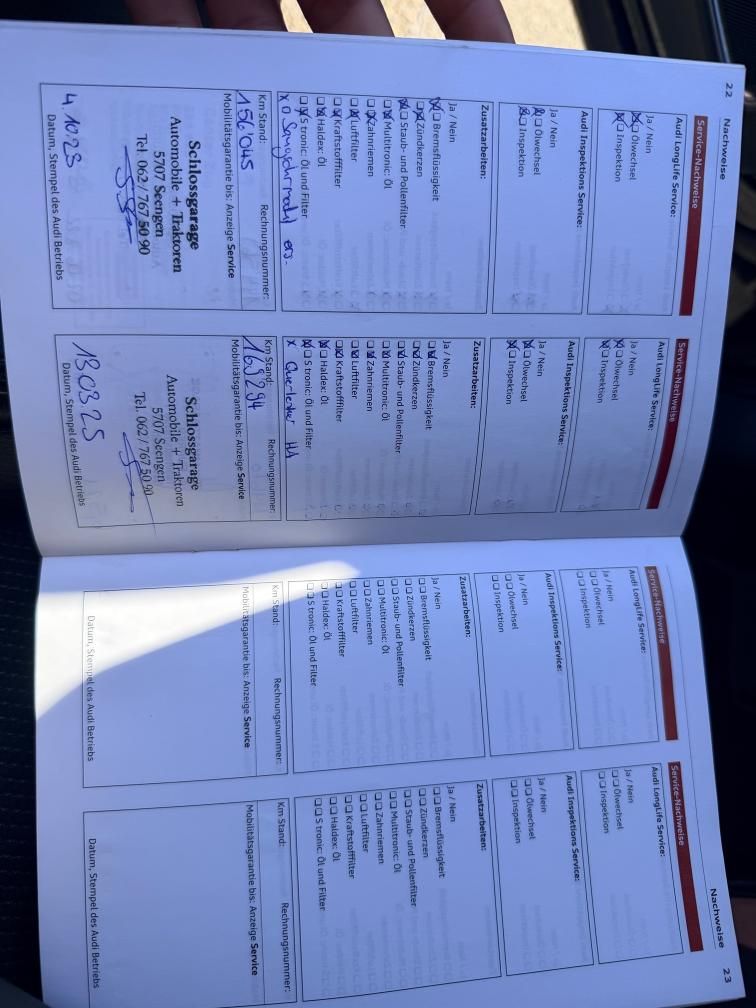 22 Nachweise
Service-Nachweise
Audi LongLife Service:
Ja / Nein
Ölwechsel
Inspektion
Audi Inspektions Service:
Ja / Nein
Ölwechsel
Inspektion
Zusatzarbeiten:
Ja / Nein
Bremsflüssigkeit
Zündkerzen
Staub- und Pollenfilter
Multitronic: Öl
Zahnriemen
Luftfilter
Kraftstofffilter
Haldex: Öl
S tronic: Öl und Filter
Km Stand: Rechnungsnummer:
156045
Mobilitätsgarantie bis: Anzeige Service
Schlossgarage
Automobile + Traktoren
5707 Seengen
Tel. 062 / 767 50 90
4.10 23
Datum, Stempel des Audi Betriebs
Service-Nachweise
Audi LongLife Service:
Ja / Nein
Ölwechsel
Inspektion
Audi Inspektions Service:
Ja / Nein
Ölwechsel
Inspektion
Zusatzarbeiten:
Ja / Nein
Bremsflüssigkeit
Zündkerzen
Staub- und Pollenfilter
Multitronic: Öl
Zahnriemen
Luftfilter
Kraftstofffilter
Haldex: Öl
S tronic: Öl und Filter
x Querlenker HA
Km Stand: Rechnungsnummer:
169294
Mobilitätsgarantie bis: Anzeige Service
Schlossgarage
Automobile + Traktoren
5707 Seengen
Tel. 062 / 767 50 90
13.03 25
Datum, Stempel des Audi Betriebs
Nachweise 23
Service-Nachweise
Audi LongLife Service:
Ja / Nein
Ölwechsel
Inspektion
Audi Inspektions Service:
Ja / Nein
Ölwechsel
Inspektion
Zusatzarbeiten:
Ja / Nein
Bremsflüssigkeit
Zündkerzen
Staub- und Pollenfilter
Multitronic: Öl
Zahnriemen
Luftfilter
Kraftstofffilter
Haldex: Öl
S tronic: Öl und Filter
Km Stand: Rechnungsnummer:
Mobilitätsgarantie bis: Anzeige Service
Datum, Stempel des Audi Betriebs
Service-Nachweise
Audi LongLife Service:
Ja / Nein
Ölwechsel
Inspektion
Audi Inspektions Service:
Ja / Nein
Ölwechsel
Inspektion
Zusatzarbeiten:
Ja / Nein
Bremsflüssigkeit
Zündkerzen
Staub- und Pollenfilter
Multitronic: Öl
Zahnriemen
Luftfilter
Kraftstofffilter
Haldex: Öl
S tronic: Öl und Filter
Km Stand: Rechnungsnummer:
Mobilitätsgarantie bis: Anzeige Service
Datum, Stempel des Audi Betriebs